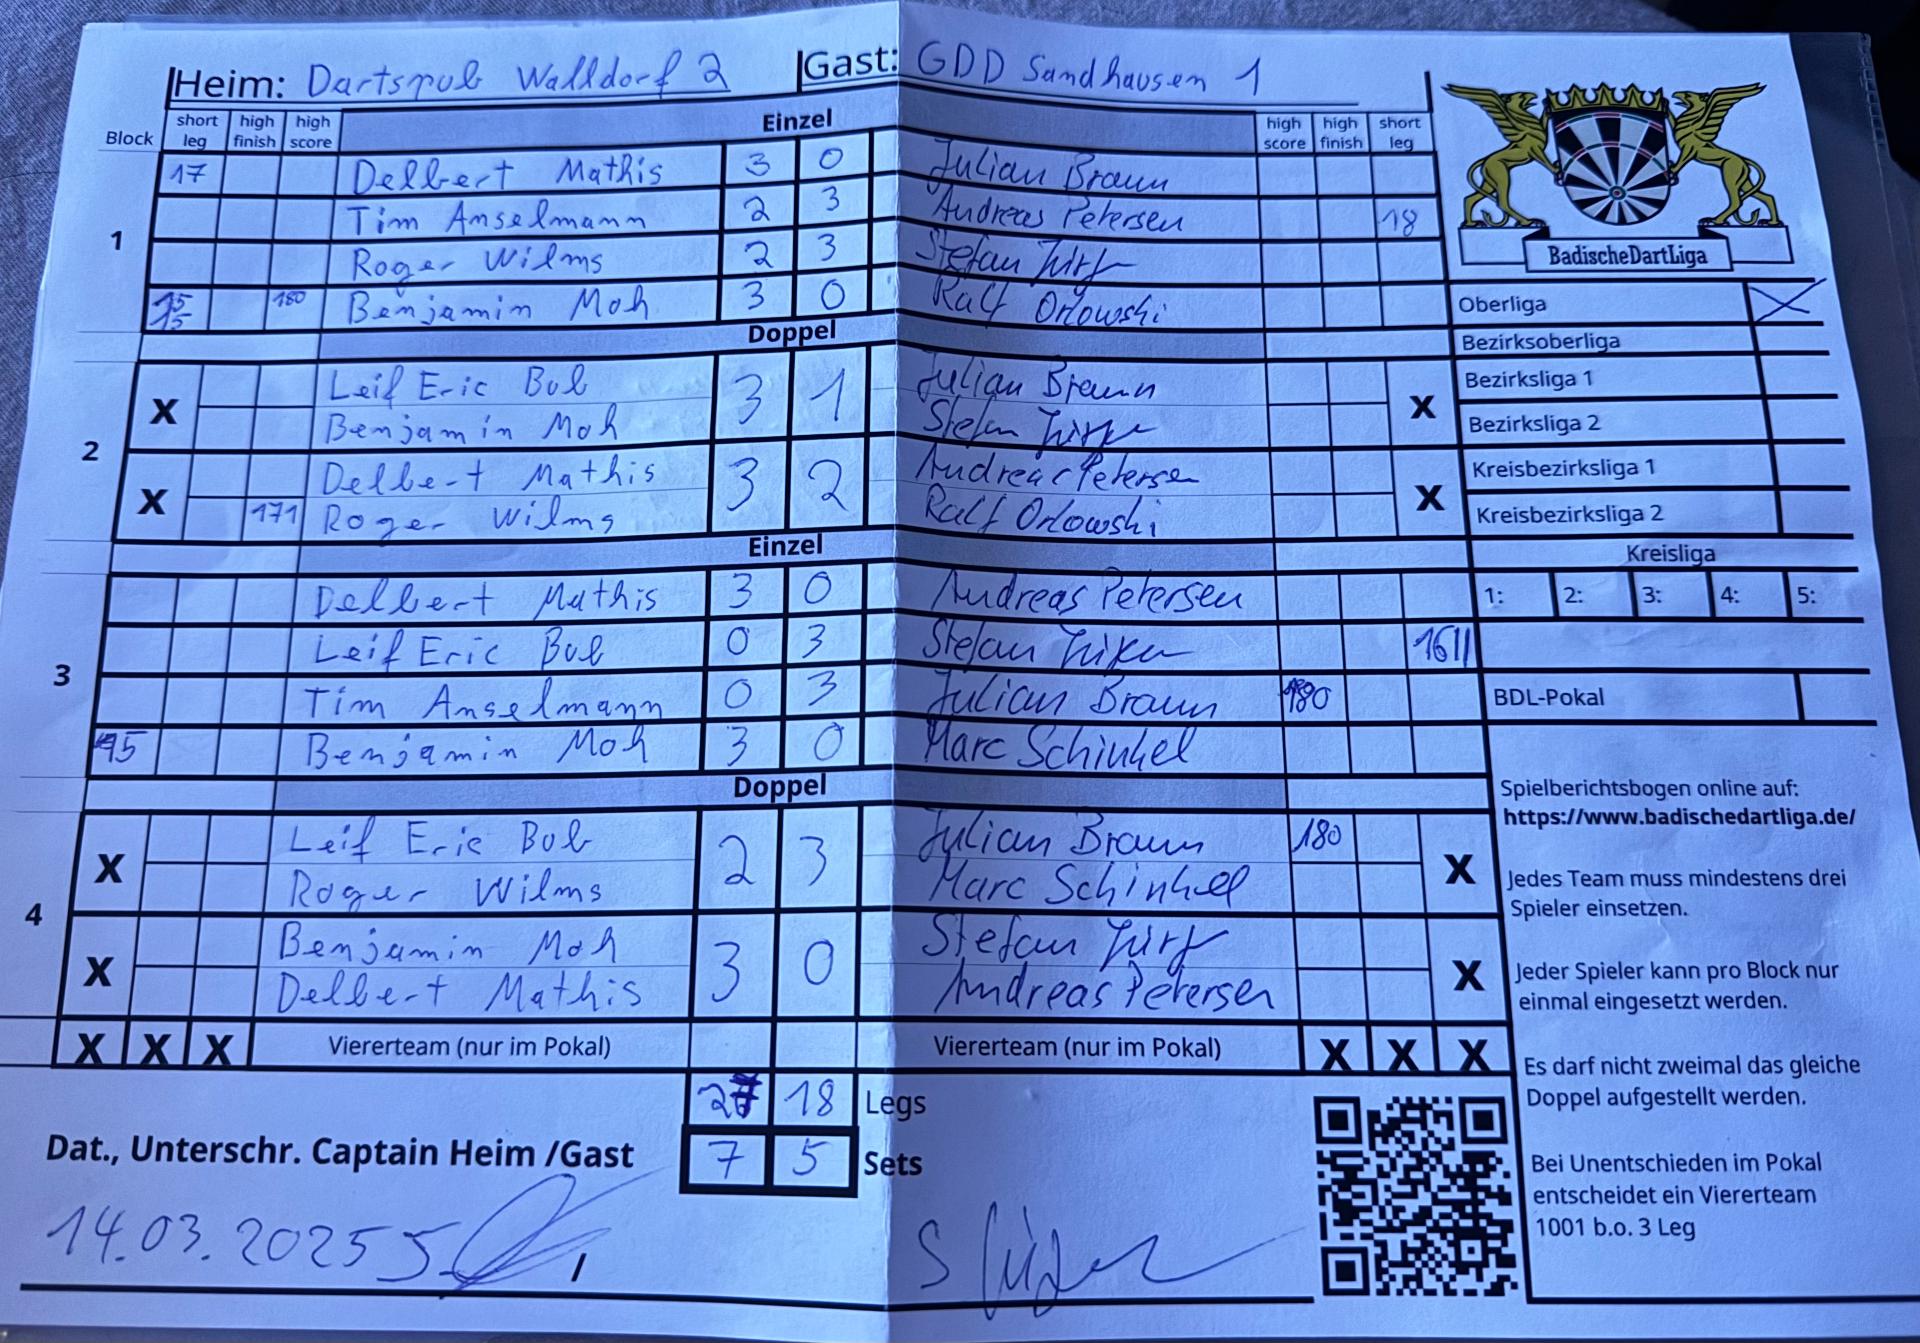 Heim: Dartspub Walldorf 2 Gast: GDD Sandhausen 1
Block short leg high finish high score Einzel high score high finish short leg
1
17 Delbert Mathis 3 0 Julian Braun
Tim Anselmann 2 3 Andreas Petersen 18
Roger Wilms 2 3 Stefan
15 15 180 Benjamin Moh 3 0 Ralf Orlowski
Doppel
2
X Leif Eric Bub 3 1 Julian Braun X
Benjamin Moh Stefan
X Delbert Mathis 3 2 Andreas Petersen X
171 Roger Wilms Ralf Orlowski
Einzel
3
Delbert Mathis 3 0 Andreas Petersen
Leif Eric Bub 0 3 Stefan 16 11
Tim Anselmann 0 3 Julian Braun 180
15 Benjamin Moh 3 0 Marc Schinkel
Doppel
4
X Leif Eric Bub 2 3 Julian Braun 180 X
Roger Wilms Marc Schinkel
X Benjamin Moh 3 0 Stefan X
Delbert Mathis Andreas Petersen
X X X Viererteam (nur im Pokal) Viererteam (nur im Pokal) X X X
18 Legs
7 5 Sets
Dat., Unterschr. Captain Heim /Gast
14.03.2025 /
BadischeDartLiga
Oberliga X
Bezirksoberliga
Bezirksliga 1
Bezirksliga 2
Kreisbezirksliga 1
Kreisbezirksliga 2
Kreisliga
1: 2: 3: 4: 5:
BDL-Pokal
Spielberichtsbogen online auf:
https://www.badischedartliga.de/
Jedes Team muss mindestens drei
Spieler einsetzen.
Jeder Spieler kann pro Block nur
einmal eingesetzt werden.
Es darf nicht zweimal das gleiche
Doppel aufgestellt werden.
Bei Unentschieden im Pokal
entscheidet ein Viererteam
1001 b.o. 3 Leg